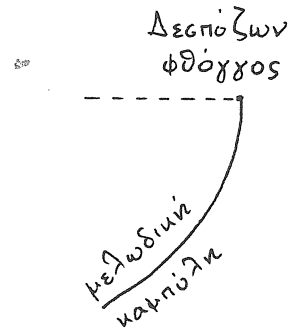 Δεσπόζων
φθόγγος
μελωδική
καμπύλη